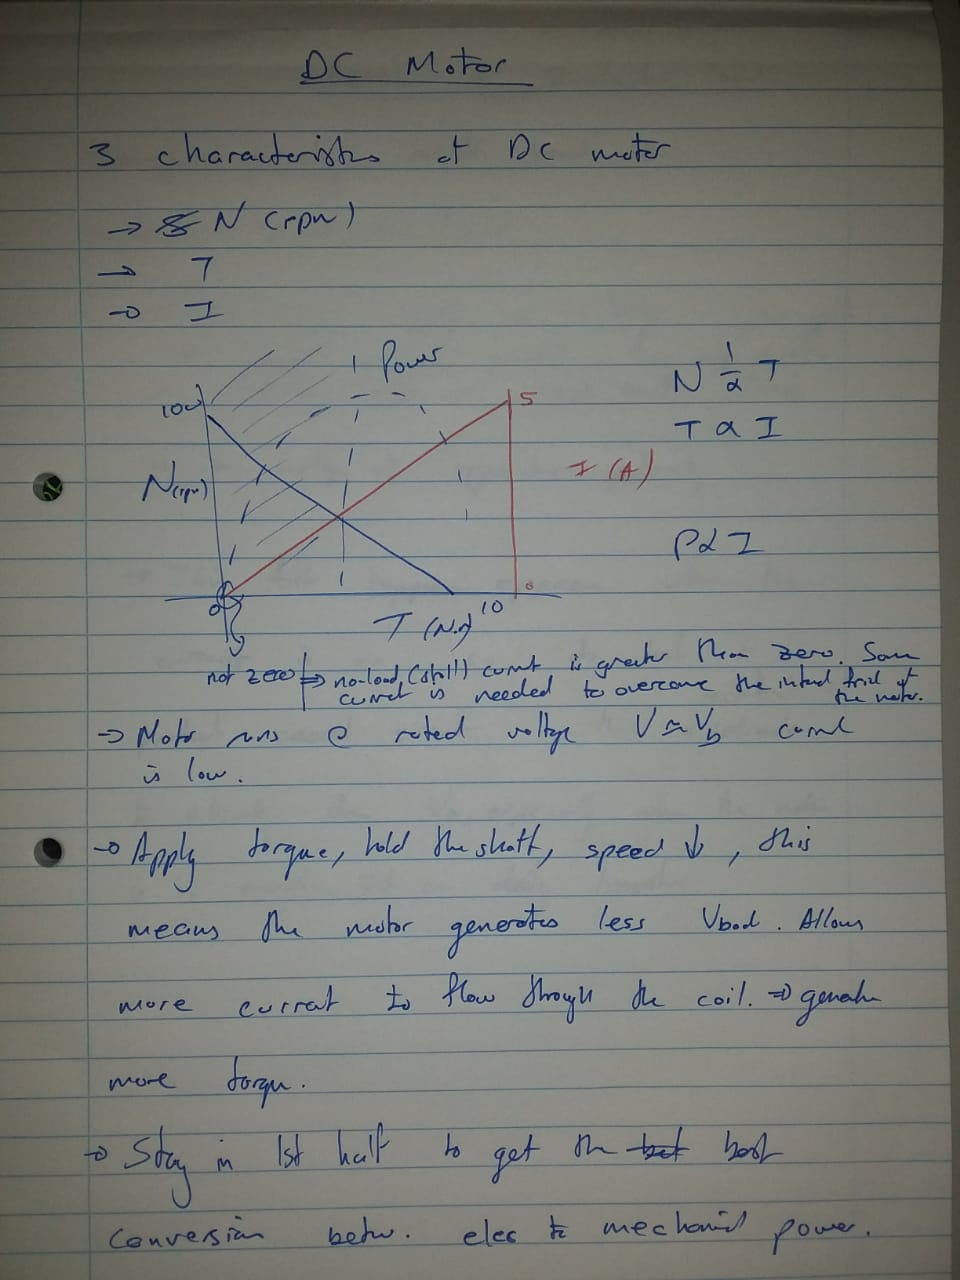 DC Motor
3 characteristics of DC motor
→ N (rpm)
→ T
→ I
Power
100
5
N 1/α T
T α I
N(rpm)
I (A)
P α I
0
0
10
T (N.m)
not zero ⇒ no-load (stall) current is greater than zero. Some
current is needed to overcome the internal frict of
the motor.
→ Motor runs @ rated voltage V ≈ Vb current
is low.
→ Apply torque, hold the shaft, speed ↓, this
means the motor generates less Vback. Allows
more current to flow through the coil. ⇒ generate
more torque.
→ Stay in 1st half to get the best
conversion betw. elec to mechanical power.